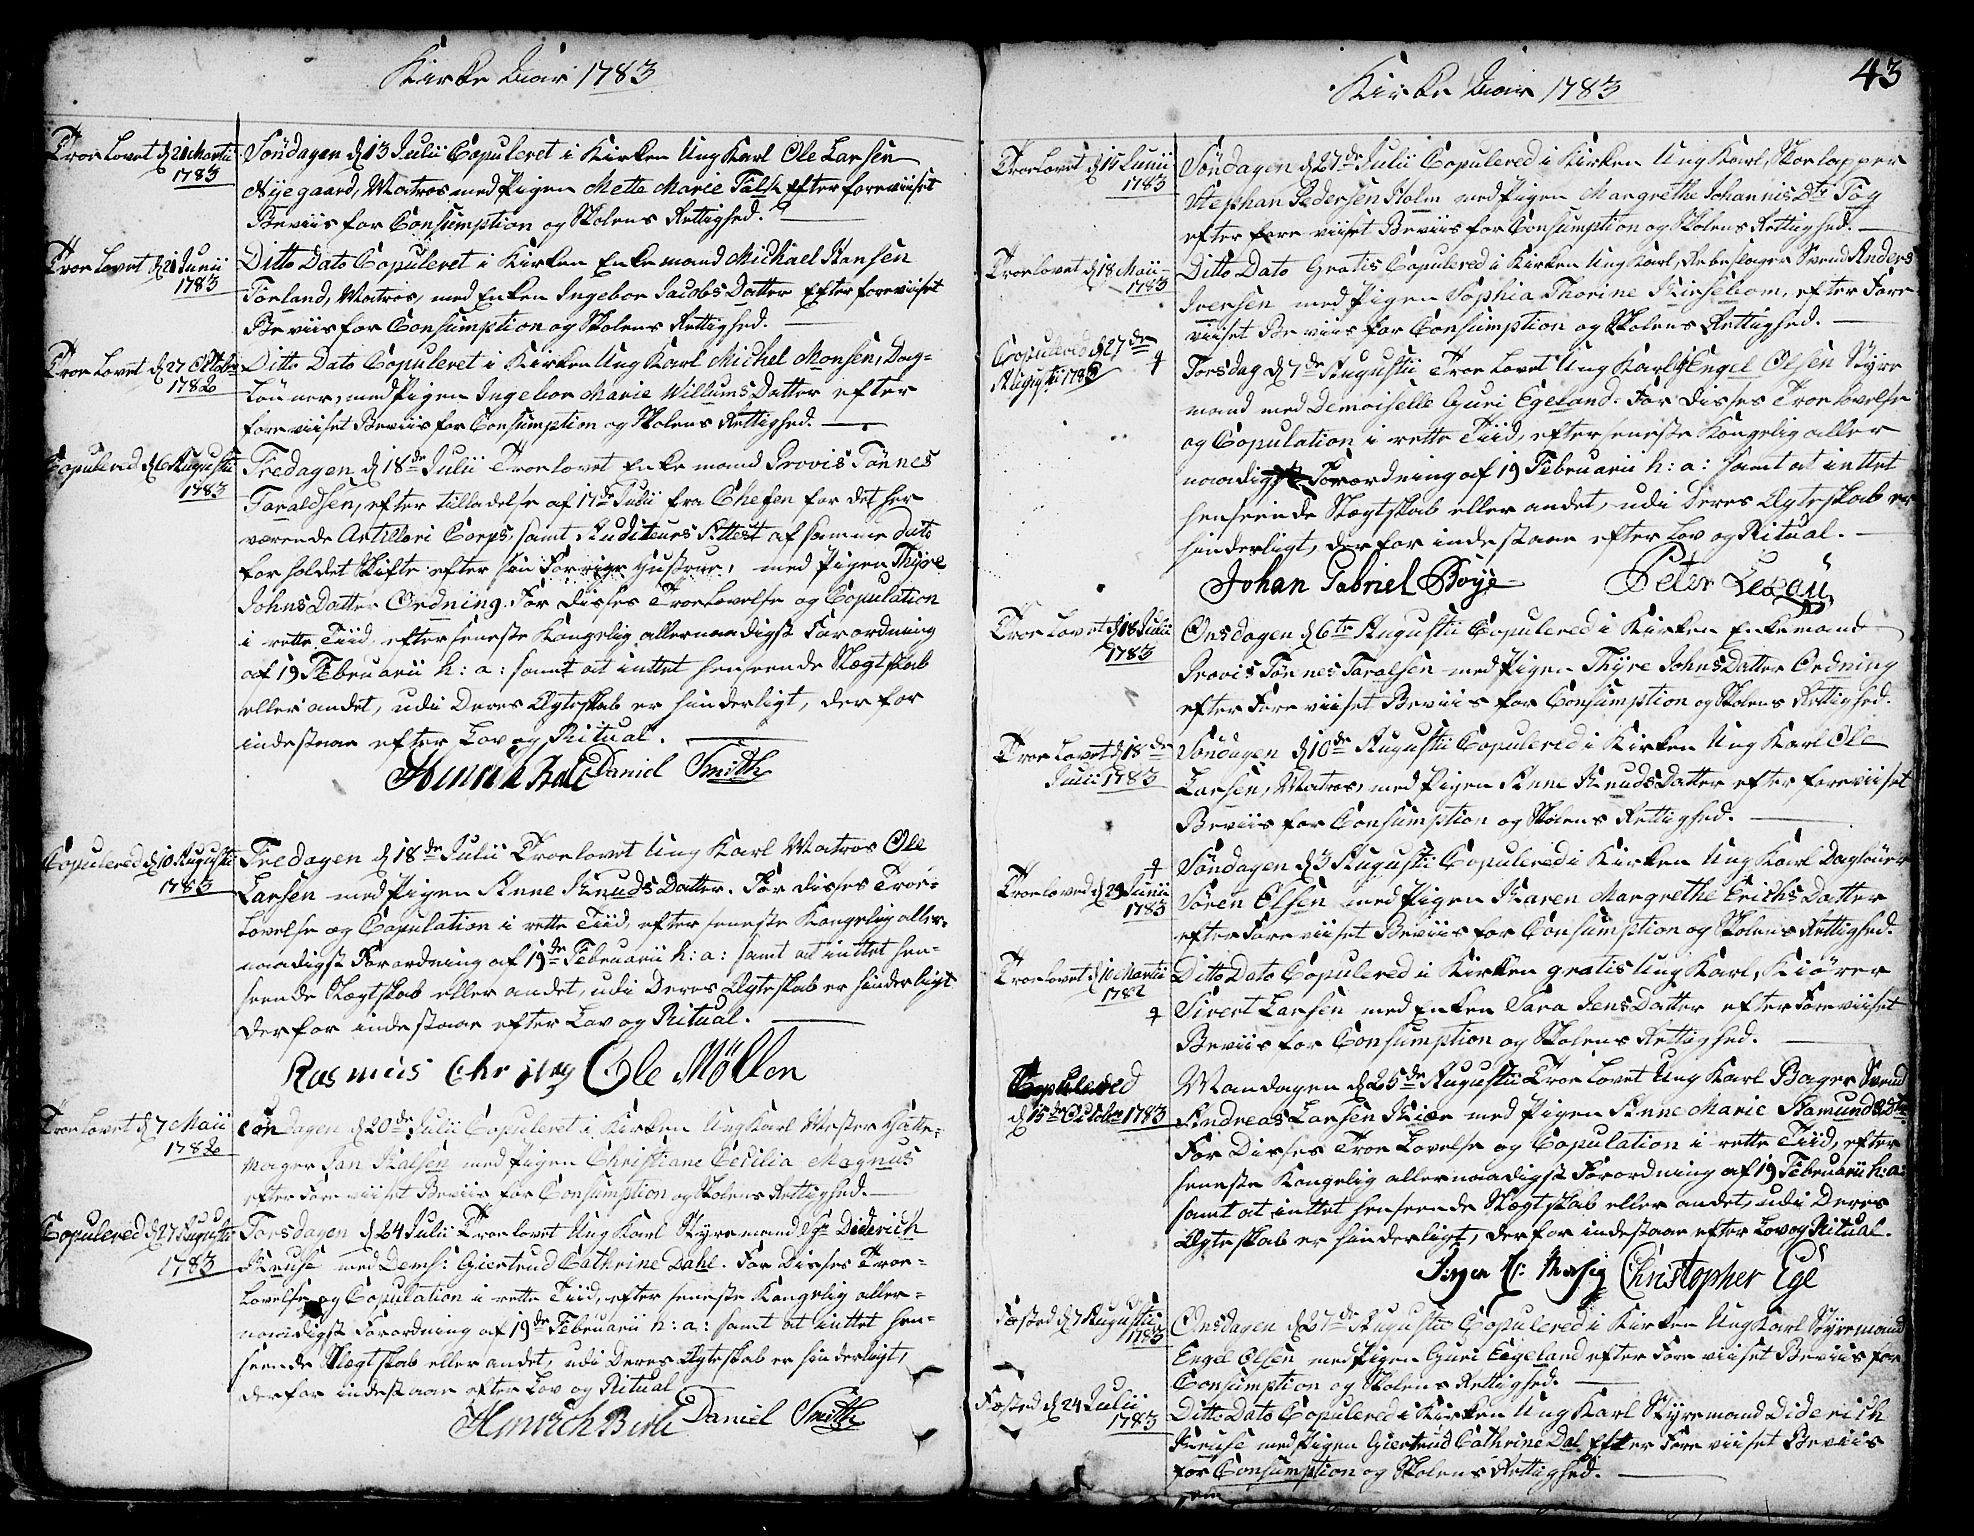 Kirke Aar 1783
Troelovet d 21 Martii
1783
Söndagen d 13 Julii Copuleret i Kirken Ung Karl Ole Larsen
Nyegaard, Matros med Pigen Mette Marie Falk efter foreviiset
Beviis for Consumption og Skolens Rettighed.
Troelovet d 21 Junii
1783
Ditto Dato Copuleret i Kirken Enkemand Michael Hansen
Torland, Matros, med Enken Ingebor Jacobs Datter efter foreviiset
Beviis for Consumption og Skolens Rettighed.
Troelovet d 27 Octobr
1782
Ditto Dato Copuleret i Kirken Ung Karl Michel Monsen, Dag-
Lönner, med Pigen Ingebor Marie Willums Datter efter
foreviiset Beviis for Consumption og Skolens Rettighed.
Copulered d 6 Augustii
1783
Fredagen d 18de Julii Troelovet Enkemand Provis Tönnes
Taraldsen, efter tilladelse af 17de Julii fra Chefen for det her
værende Artilleri Corps, samt Auditeurs Attest af samme dato
for holdet Skifte efter sin Forrige Hustrue, med Pigen Thyre
Johns Datter Ordning. For disses Troelovelse og Copulation
i rette Tiid, efter seneste Kongelig allernaadigst Forordning
af 19 Februarii h: a: samt at intet henseende Slægtskab
eller andet, udi Deres Ægteskab er hinderligt, derfor
indestaae efter Lov og Ritual.
Hinrich Birle Daniel Smith
Copulered d 10 Augustii
1783
Fredagen d 18de Julii Troelovet Ung Karl Matros Ole
Larsen med Pigen Anne Knuds Datter. For disses Troe-
Lovelse og Copulation i rette Tiid, efter seneste Kongelig aller-
naadigst Forordning af 19de Februarii h: a: samt at intet hen-
seende Slægtskab eller andet, udi Deres Ægteskab er hinderligt
derfor indestaae efter Lov og Ritual.
Rasmus Ole Möller
Troelovet d 7 Maii
1782
Söndagen d 20de Julii Copuleret i Kirken Ung Karl Mester Hatte-
mager Jan Kalsen med Pigen Christiane Cecilia Magnus
efter Foreviiset Beviis for Consumption og Skolens Rettighed.
Copulered d 27 Augustii
1783
Torsdagen d 24 Julii Troelovet Ung Karl Styremand Diderich
Kruse med Dems: Giertrud Cathrine Dahl. For Disses Troe-
Lovelse og Copulation i rette Tiid, efter seneste Kongelig aller-
naadigst Forordning af 19de Februarii h: a: samt at intet hen-
seende Slægtskab eller andet, udi Deres Ægteskab er hinderligt,
derfor indestaae efter Lov og Ritual
Hinrich Birle Daniel Smith
Kirke Aar 1783
43
Troelovet d 15 Junii
1783
Söndagen d 27de Julii Copulered i Kirken Ung Karl, Skorlapper
Stephan Pedersen Holm med Pigen Margrethe Johannis Dtr Fog
efter foreviiset Beviis for Consumption og Skolens Rettighed.
Troelovet d 18 Maii
1783
Ditto Dato Gratis Copulered i Kirken Ung Karl, Rebeslager Svend Anders
Iversen med Pigen Sophia Thorine Kirsebom, efter Fore
viiset Beviis for Consumption og Skolens Rettighed.
Copulered d 27de
Augustii 1783
Torsdag d 7de Augustii Troelovet Ung Karl Engel Olsen Styre
mand med Demoiselle Guri Egeland. For Disses Troelovelse
og Copulation i rette Tiid, efter seneste Kongelig aller
naadigst Forordning af 19 Februarii h: a: samt at intet
henseende Slægtskab eller andet, udi Deres Ægteskab er
hinderligt, derfor indestaae efter Lov og Ritual.
Johan Gabriel Boye Peter
Troelovet d 18 Julii
1783
Onsdagen d 6te Augustii Copulered i Kirken Enkemand
Provis Tönnes Taralsen med Pigen Thyre Johns Datter Ordning
efter Foreviiset Beviis for Consumption og Skolens Rettighed.
Troelovet d 18de
Julii 1783
Söndagen d 10de Augustii Copulered i Kirken Ung Karl Ole
Larsen, Matros, med Pigen Anne Knuds Datter efter foreviiset
Beviis for Consumption og Skolens Rettighed.
Troeloved d 29 Junii
1783
Söndagen d 3 Augustii Copulered i Kirken Ung Karl Daglöner
Sören Olsen med Pigen Karen Margrethe Erichs Datter
efter Foreviiset Beviis for Consumption og Skolens Rettighed.
Troelovet d 10 Martii
1782
Ditto Dato Copulered i Kirken gratis Ung Karl, Kiörer
Sivert Larsen med Enken Sara Jens Datter efter Foreviiset
Beviis for Consumption og Skolens Rettighed.
Copulered
d 15de Octobr 1783
Mandagen d 25de Augustii Troelovet Ung Karl Bager Svend
Andreas Larsen Kiær med Pigen Anne Marie Amunds Dtr
For Disses Troe Lovelse og Copulation i rette Tiid, efter
seneste Kongelig allernaadigst Forordning af 19 Februarii h: a:
samt at intet henseende Slægtskab eller andet, udi Deres
Ægteskab er hinderligt, derfor indestaae efter Lov og Ritual.
Christopher Ege
Fæsted d 7 Augustii
1783
Onsdagen d 27de Augustii Copulered i Kirken Ung Karl Styremand
Engel Olsen med Pigen Guri Eigeland efter Foreviiset Beviis for
Consumption og Skolens Rettighed.
Fæsted d 24 Julii
1783
Ditto Dato Copulered i Kirken Ung Karl Styremand Diderich
Kruse med Pigen Giertrud Cathrine Dal efter Foreviiset Beviis
for Consumption og Skolens Rettighed.